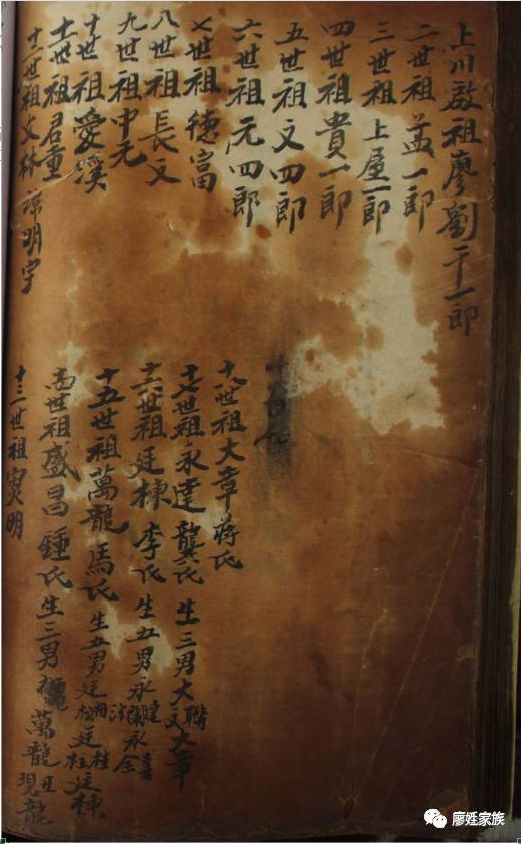 上川啟祖廖劉千一郎
二世祖孟一郎
三世祖上屋一郎
四世祖貴一郎
五世祖文四郎
六世祖元四郎
七世祖德富
八世祖長文
九世祖中元
十世祖愛溪
十一世祖君重
十二世祖文林 明宇
十三世祖 明
世祖盛昌鍾氏生三男 萬龍 現龍
十五世祖萬龍馬氏生五男廷松廷 廷棟
十六世祖廷棟李氏生五男永達 永
十七世祖永達龔氏生三男大聯大文大章
十八世祖大章蔣氏
廖姓家族